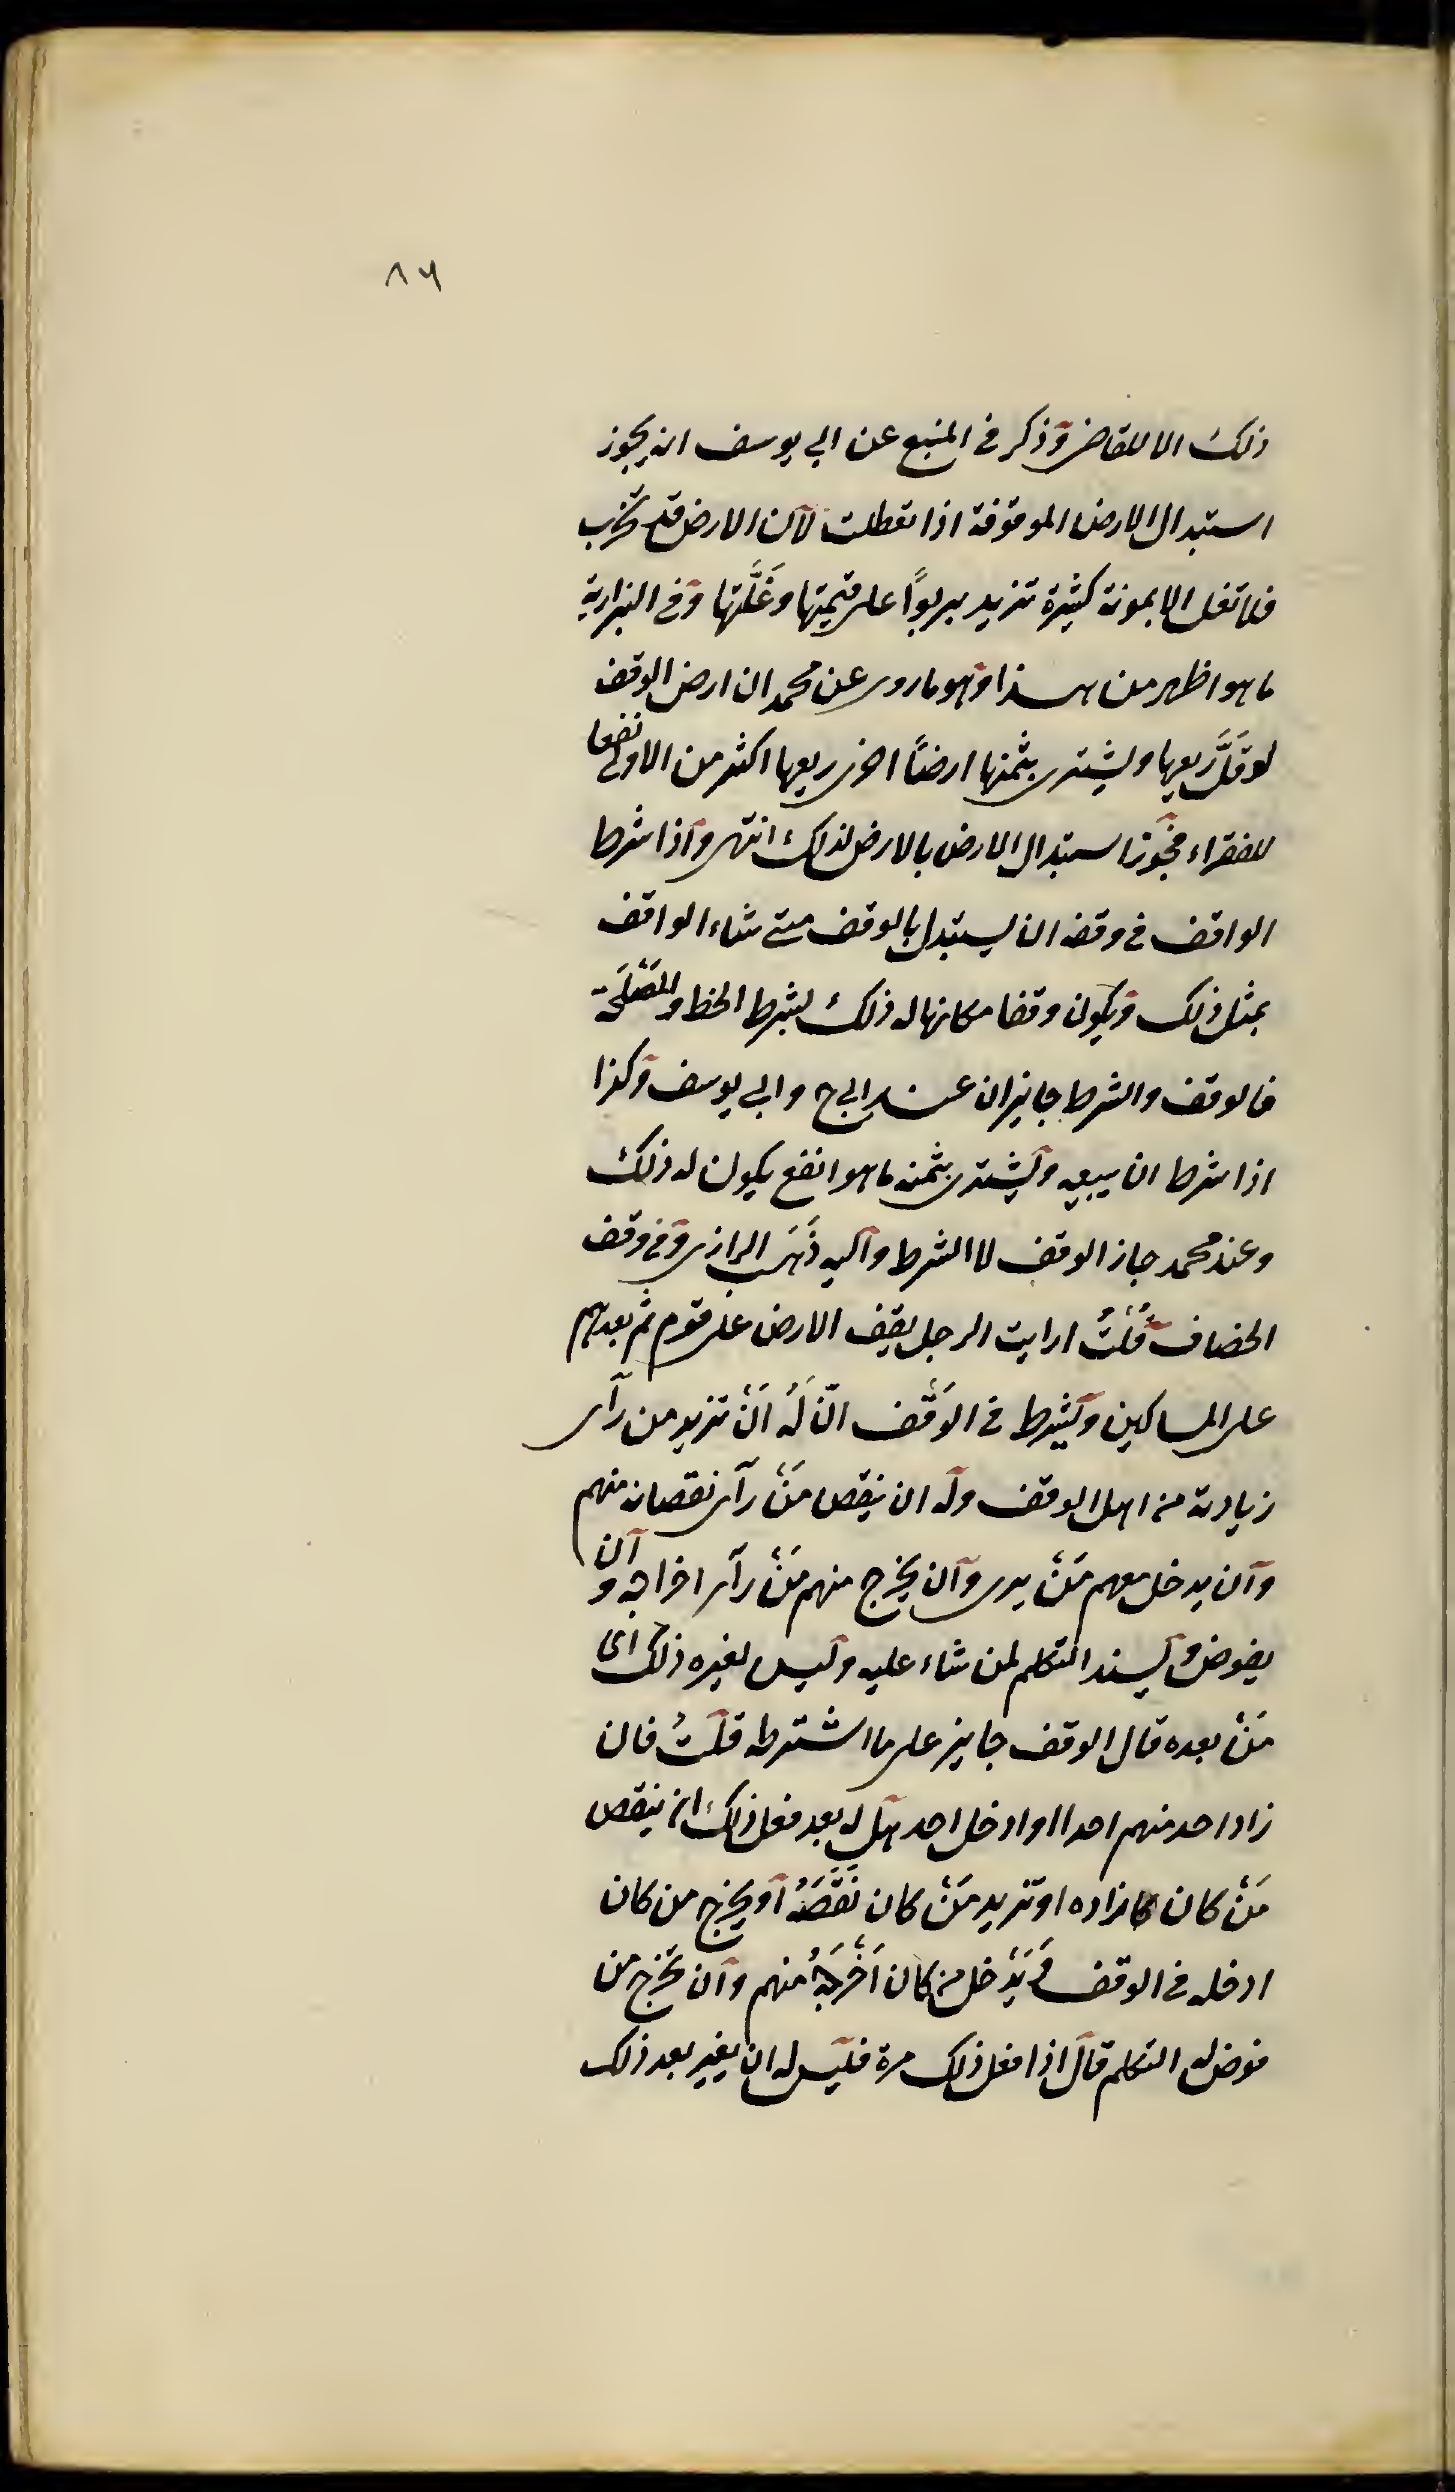 ٨٦
ذلك الا للقاضى وذكر فى المنبع عن ابى يوسف انه يجوز
استبدال الارض الموقوفة اذا تعطلت لان الارض قد تخرب
فلا تغل الا بمونة كثيرة تزيد يربوًا على قيمتها وغَلَّتها وفى البزازية
ما هو اظهر من هذا وهو ما روى عن محمد ان ارض الوقف
لو قَلَّ ريعها ويشترى بثمنها ارضًا اخرى ريعها اكثر من الاولى نفعا
للفقراء فجوّز استبدال الارض بالارض لذلك انتهى واذا شرط
الواقف فى وقفه ان يستبدل بالوقف متى شاء الواقف
بمثل ذلك ويكون وقفا مكانها له ذلك بشرط الحظ والمَصْلَحَة
فالوقف والشرط جايزان عند ابى ح وابى يوسف وكذا
اذا شرط ان يبيعه ويشترى بثمنه ما هو انفع يكون له ذلك
وعند محمد جاز الوقف لا الشرط واليه ذَهَب الرازى وفى وقف
الخصاف قُلْتُ ارايت الرجل يقف الارض على قوم ثم بعدهم
على المساكين ويشرط فى الوَقْف انّ لَهُ اَنْ تزيد من رآى
زيادته من اهل الوقف وله ان ينقص مَنْ رآى نقصانه منهم
وان يدخل معهم مَنْ يرى وان يخرج منهم مَنْ رآى اخراجه وان
يفوض ويسند التكلم لمن شاء عليه وليس لغيره ذلك اى
مَنْ بعده قال الوقف جايز على ما اشترطه قلتُ فان
زاد احد منهم احدا او ادخل احد هل له بعد فعل ذلك ان ينقص
مَنْ كان زاده او تزيد مَنْ كان نَقَّصَهُ او يخرج من كان
ادخله فى الوقف ويَدْخل من كان اَخْرَجَهُ منهم وان تخرج من
فوض له التكلم قال اذا فعل ذلك مرة فليس له ان يغير بعد ذلك